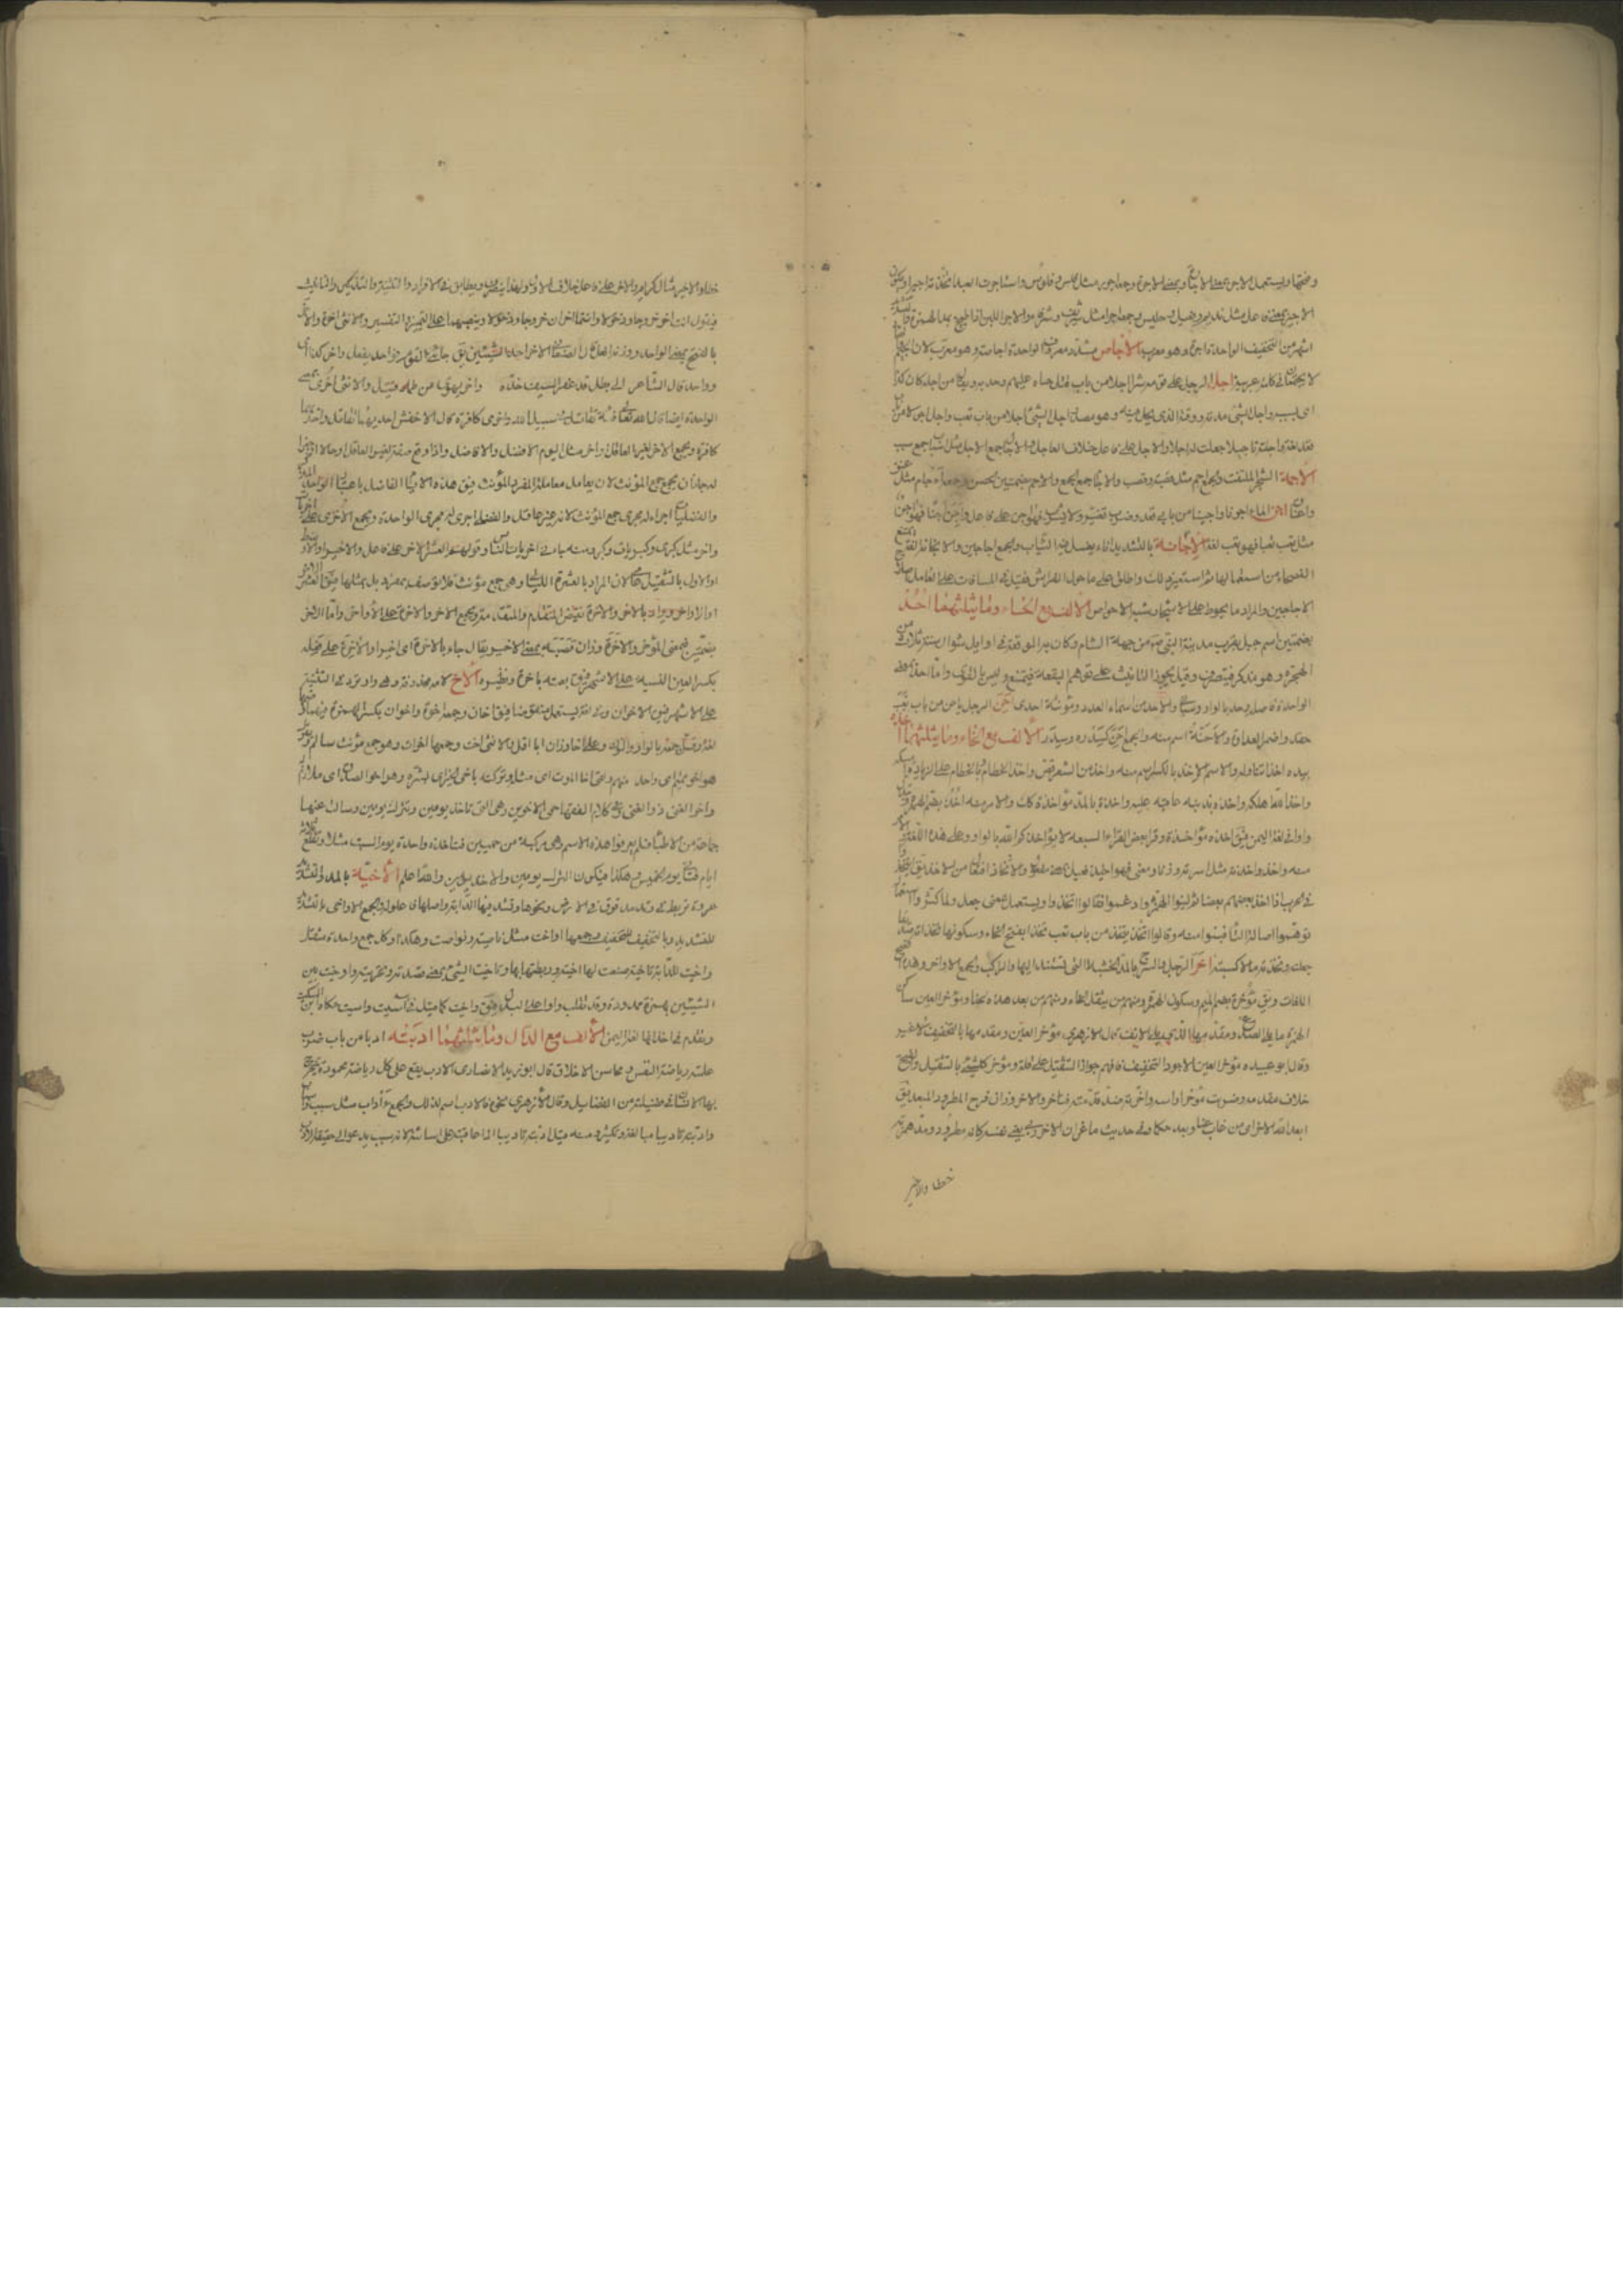 وضمها ويستعمل الاجر بمعنى الاجارة وبمعنى الاجرة وجمعه اجور مثل فلس وفلوس واستاجرت العبد اتخذته اجيرا ويكون
الاجير بمعنى فاعل مثل نديم وجليس وجمعه اجرا مثل شريف وشرفا والاجر اللبن اذا طبخ بمد الهمزة والتشديد
اشهر من التخفيف الواحدة اجرة وهو معرب الاجاص مشدد معروف الواحدة اجاصة وهو معرب لان الجيم والصاد
لا يجتمعان في كلمة عربية اجل الرجل على قومه شرا اجلا من باب قتل جناه عليهم وجلبه ويقال من اجله كان كذا
اى بسببه واجل الشئ مدته ووقته الذى يحل فيه وهو مصدر اجل الشئ اجلا من باب تعب واجل اجولا من باب
قعد لغة واجلته تاجيلا جعلت له اجلا والاجل على فاعل خلاف العاجل وجمع الاجل اجال مثل سبب
الاجمة الشجر الملتف والجمع اجم مثل قصبة وقصب والاجام جمع الجمع والاجم بضمتين الحصن وجمعه آجام مثل عنق
واعناق اجن الماء اجنا واجونا من بابى ضرب وقعد تغير الا انه يشرب فهو اجن على فاعل واجن اجنا فهو اجن
مثل تعب تعبا فهو تعب لغة الاجانة بالتشديد اناء يغسل فيه الثياب والجمع اجاجين والانجانة لغة تمتنع
الفصحاء من استعمالها ثم استعير ذلك واطلق على ما حول الغراس فقيل في المساقاة على العامل اصلاح
الاجاجين والمراد ما يحوط على الاشجار شبه الاحواض الالف مع الحاء وما يثلثهما احد
بضمتين اسم جبل بقرب مدينة النبى ص من جهة الشام وكان به الوقعة في اوايل شوال سنة ثلاث من
الهجرة وهو مذكر فينصرف وقيل يجوز التانيث على توهم البقعة فيمنع وليس بالقوى واما احد بمعنى
الواحد فاصله وحد بالواو والاحد من اسماء العدد ومؤنثه احدى احن الرجل ياحن من باب تعب
حقد واضمر العداوة والاحنة اسم منه والجمع احن كسدرة وسدر الالف مع الخاء وما يثلثهما اخذه
بيده اخذا تناوله والاسم الاخذ بالكسر اسم منه واخذ من الشعر قص واخذ الخطام بالخطام على الزيادة امسكه
واخذه الله اهلكه واخذه بذنبه عاقبه عليه واخذه بالمد مؤاخذة كذلك والامر منه اخذ بمد الهمزة وتبدل
واوا في لغة اليمن فيقال واخذه مؤاخذة وقرا بعض القراء السبعة لا يؤاخذكم الله بالواو وعلى هذه اللغة والامر
منه واخذ واخذته مثل اسرته وزنا ومعنى فهو اخيذ فعيل بمعنى مفعول والاتخاذ افتعال من الاخذ يق اتخذوا
في الحرب اذا اخذ بعضهم بعضا ثم لينوا الهمزة وادغموا فقالوا اتخذوا ويستعمل بمعنى جعل ولما كثر استعماله
توهموا اصالة التاء فبنوا منه وقالوا اتخذ يتخذ من باب تعب تخذا بفتح الخاء وسكونها تخذت صديقا
جعلت وتخذت مالا كسبته اخرة الرجل والسرج بالمد الخشبة التى يستند اليها الراكب والجمع الاواخر وهذه افصح
اللغات ويق مؤخرة بضم الميم وسكون الهمزة ومنهم من يثقل الخاء ومنهم من يعد هذه لحنا ومؤخر العين ساكن
الهمزة ما يلى الصدغ ومقدمها الذى يلى الانف قال الازهرى مؤخر العين ومقدمها بالتخفيف لا غير
وقال ابو عبيدة مؤخر العين الاجود التخفيف فافهم جواز التثقيل على قلة ومؤخر كل شئ بالتثقيل والفتح
خلاف مقدمه وضربت مؤخر راسه واخرته ضد قدمته فتاخر والاخر وزان فرح المطرود المبعد يق
ابعد الله الاخر اى من غاب عنا وبعد حكما وفي حديث ماعز ان الاخر زنى يعنى نفسه كانه مطرود ومد همزته
خطا والاخير
خطا والاخير مثال كريم والاخر على فاعل خلاف الاول ولهذا ينصرف ويطابق في الافراد والتثنية والتذكير والتانيث
فيقول انت اخر خروجا ودخولا وانتما اخران خروجا ودخولا وينصبهما على التمييز والتفسير والانثى اخرة والاخر
بالفتح بمعنى الواحد ووزنه افعل قال الصغانى الاخر احد الشيئين يق جاء القوم فواحد يفعل واخر كذا اى
وواحد قال الشاعر الى بطل قد عقر السيف خده واخر يهوى من طمار قتيل والانثى اخرى بمعنى
الواحدة ايضا قال الله تعالى فئة تقاتل في سبيل الله واخرى كافرة قال الاخفش احديهما تقاتل واخرى
كافرة ويجمع الاخر لغير العاقل اواخر مثل اليوم الافضل والافاضل واذا وقع صفة لغير العاقل او حالا او خبرا
له جاز ان يجمع جمع المؤنث وان يعامل معاملة المفرد المؤنث فيق هذه الايام الافاضل باعتبار الواحد المذكر
والفضليات اجراء له مجرى جمع المؤنث لانه غير عاقل والفضلى اجراء له مجرى الواحدة ويجمع الاخرى على اخريات
واخر مثل كبرى وكبريات وكبر ومنه جاء في اخريات الناس وقولهم في العشر الاخر على فاعل والاخير والاوسط
او الاول بالتثقيل عامى لان المراد بالعشر الليالى وهى جمع مؤنث فلا توصف بمفرد بل بمثلها ويق العشر الاخر
او الاواخر ويراد بالاخر والاخرة نقيض المتقدم والمتقدمة ويجمع الاخر والاخرة على الاواخر واما الاخر
بضمتين فبمعنى المؤخر والاخرة وزان قصبة بمعنى الاخير يقال جاء باخرة اى اخيرا والاخرة على فعلة
بكسر العين النسيئة على الاشهر يق بعته باخرة ونظرة الاخ لامه محذوفة وهى واو ترد في التثنية
على الاشهر فيق اخوان وفي لغة يستعمل منقوصا فيق اخان وجمعه اخوة واخوان بكسر الهمزة وضمها
لغة وقل جمعه بالواو والنون وعلى اخاء وزان اباء اقل والانثى اخت وجمعها اخوات وهو جمع مؤنث سالم
هو اخو تميم اى واحد منهم ولقى اخا الموت اى مثله وتركته باخى الخير اى بشر وهو اخو الصدق اى ملازم له
واخو الغنى ذو الغنى وفي كلام الفقهاء حمى الاخوين وهى التى تاخذ يومين وتترك يومين وسالت عنها
جماعة من الاطباء فلم يعرفوا هذا الاسم وهى مركبة من حميين فتاخذه واحدة يوم السبت مثلا وتقلع ثلاثة
ايام وتاتى يوم الخميس وهكذا فيكون الترك يومين والاخذ يومين والله اعلم الاخية بالمد والتشديد
عروة تربط في وتد مدقوق في الارض ونحوها وتشد فيها الدابة واصلها فاعولة والجمع الاواخى بالتشديد
للتشديد وبالتخفيف للتخفيف وجمعها اواخ مثل ناصية ونواص وهكذا كل جمع واحده مثقل
واخيت للدابة تاخية صنعت لها اخية وربطتها بها وتاخيت الشئ بمعنى قصدته وتحريته واخيت بين
الشيئين بهمزة ممدودة وقد تقلب واوا على البدل فيق واخيت كما قيل في اسيت واسيت حكاه ابن السكيت
وتقدم في اخذ انها لغة اليمن الالف مع الدال وما يثلثهما ادبته ادبا من باب ضرب
علمته رياضة النفس ومحاسن الاخلاق قال ابو زيد الانصارى الادب يقع على كل رياضة محمودة يتخرج
بها الانسان في فضيلة من الفضايل وقال الازهرى نحوه فالادب اسم لذلك والجمع آداب مثل سبب واسباب
وادبته تاديبا مبالغة وتكثير ومنه قيل ادبته تاديبا اذا عاقبته على اسائته لانه سبب يدعو الى حقيقة الادب